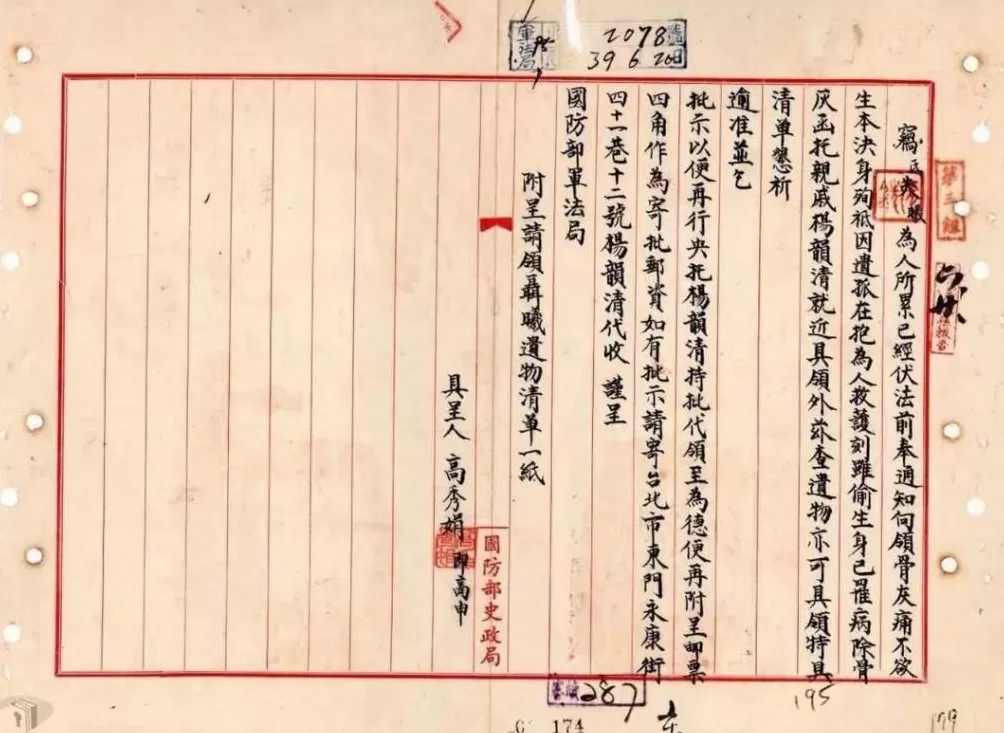 軍法局
2078號
39 6 20日
竊氏夫聶曦為人所累已經伏法前奉通知向領骨灰痛不欲
生本決身殉祇因遺孤在抱為人救護刻雖偷生身已罹病除骨
灰函托親戚楊韻清就近具領外茲查遺物亦可具領特具
清單懇祈
逾准並乞
批示以便再行央托楊韻清持批代領至為德便再附呈郵票
四角作為寄批郵資如有批示請寄台北市東門永康街
四十一巷十二號楊韻清代收 謹呈
國防部軍法局
附呈請領聶曦遺物清單一紙
具呈人 高秀娟 即高申
國防部史政局
第三組
287
195
174
179